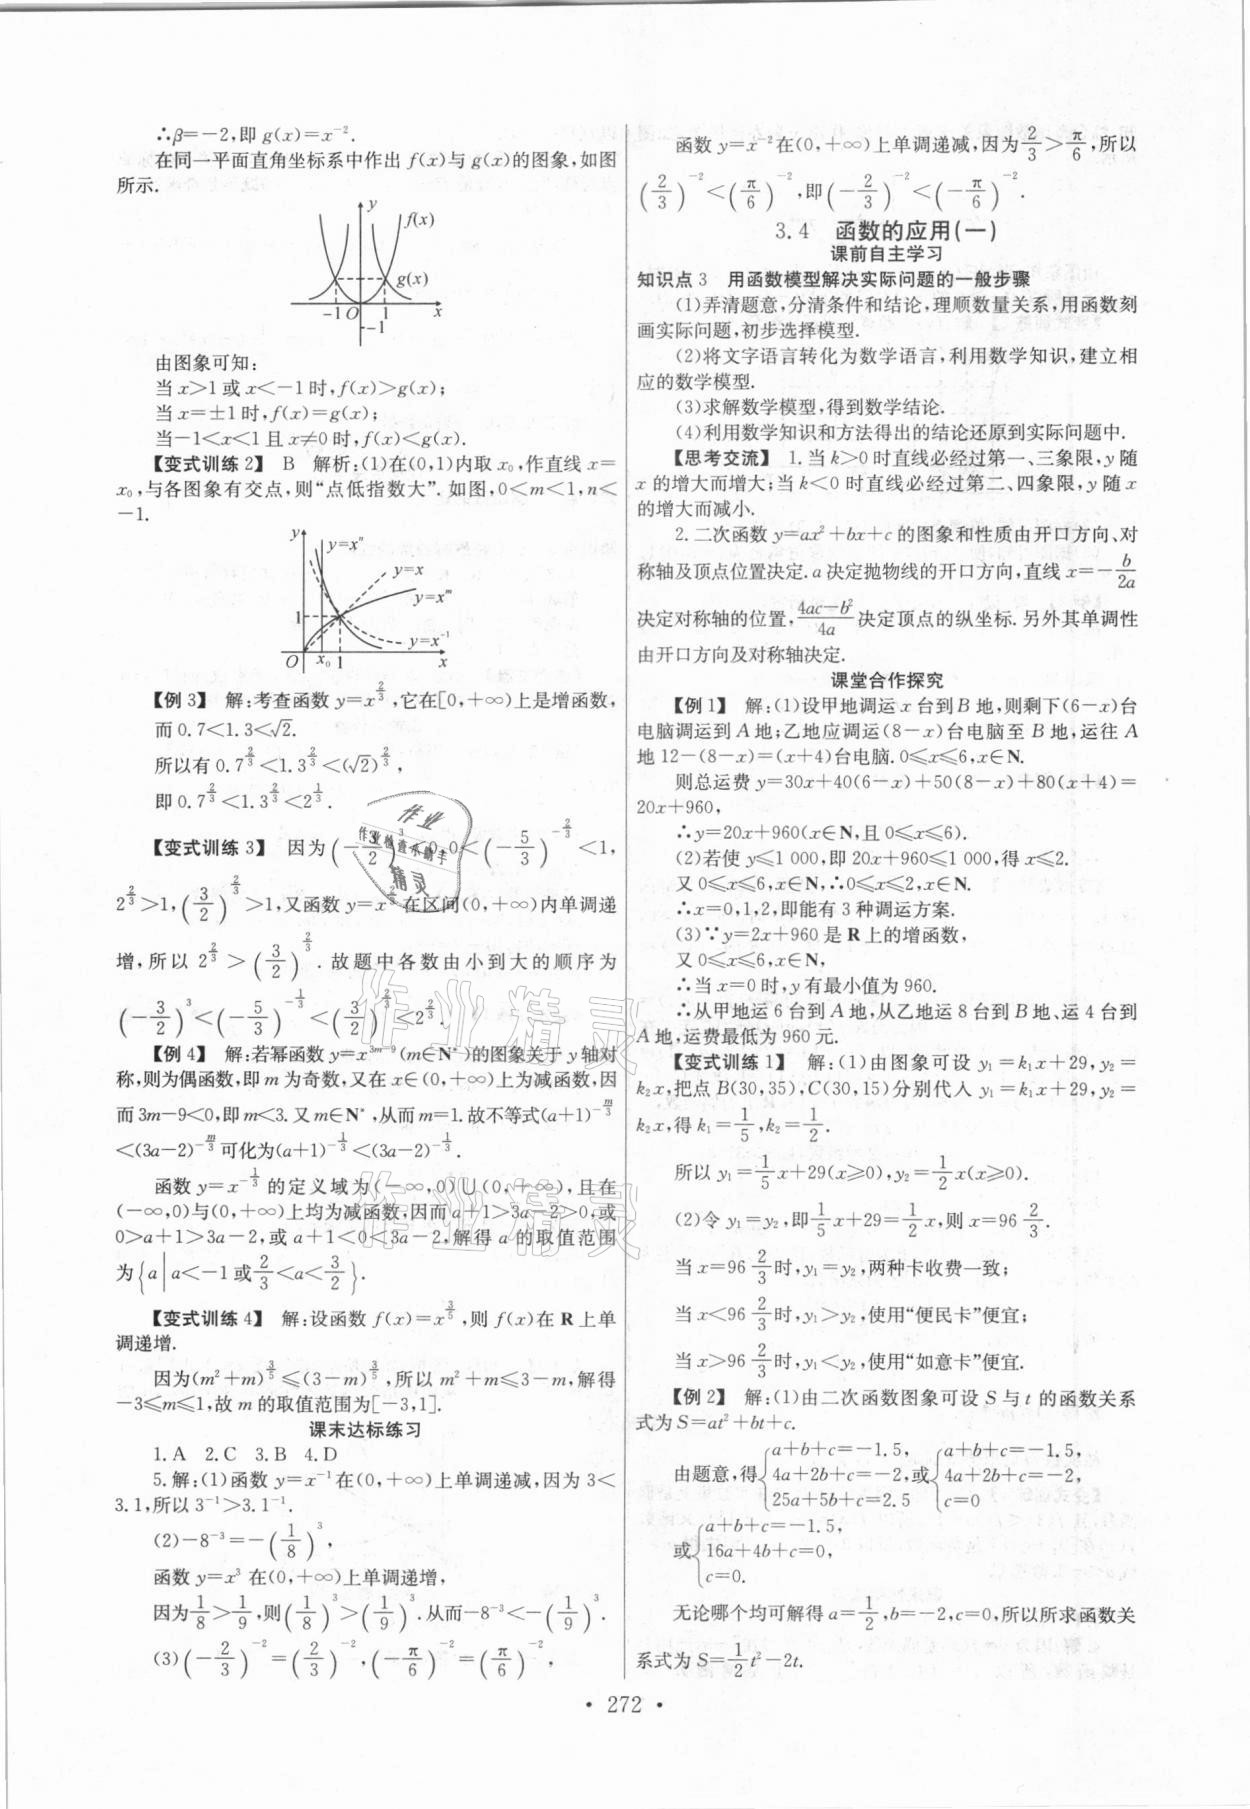 ∴β=-2,即 g(x)=x⁻².
在同一平面直角坐标系中作出 f(x)与 g(x)的图象,如图
所示.
y
f(x)
g(x)
-1 O 1 x
-1
由图象可知:
当 x>1 或 x<-1 时,f(x)>g(x);
当 x=±1 时,f(x)=g(x);
当-1<x<1 且 x≠0 时,f(x)<g(x).
【变式训练 2】 B 解析:(1)在(0,1)内取 x₀,作直线 x=
x₀,与各图象有交点,则“点低指数大”. 如图,0<m<1,n<
-1.
y
y=xⁿ
y=x
y=xᵐ
1
y=x⁻¹
O x₀ 1 x
【例 3】 解:考查函数 y=x^(2/3),它在[0,+∞)上是增函数,
而 0.7<1.3<√2.
所以有 0.7^(2/3)<1.3^(2/3)<(√2)^(2/3),
即 0.7^(2/3)<1.3^(2/3)<2^(1/3).
【变式训练 3】 因为(-3/2)³<0,0<(-5/3)^(-2/3)<1,
2^(2/3)>1,(3/2)^(2/3)>1,又函数 y=x^(2/3)在区间(0,+∞)内单调递
增,所以 2^(2/3)>(3/2)^(2/3). 故题中各数由小到大的顺序为
(-3/2)³<(-5/3)^(-1/3)<(3/2)^(2/3)<2^(2/3).
【例 4】 解:若幂函数 y=x^(3m-9)(m∈N*)的图象关于 y 轴对
称,则为偶函数,即 m 为奇数,又在 x∈(0,+∞)上为减函数,因
而 3m-9<0,即 m<3. 又 m∈N*,从而 m=1. 故不等式(a+1)^(-m/3)
<(3a-2)^(-m/3)可化为(a+1)^(-1/3)<(3a-2)^(-1/3).
函数 y=x^(-1/3)的定义域为(-∞,0)∪(0,+∞),且在
(-∞,0)与(0,+∞)上均为减函数,因而 a+1>3a-2>0,或
0>a+1>3a-2,或 a+1<0<3a-2,解得 a 的取值范围
为{a|a<-1 或 2/3<a<3/2}.
【变式训练 4】 解:设函数 f(x)=x^(3/5),则 f(x)在 R 上单
调递增.
因为(m²+m)^(3/5)≤(3-m)^(3/5),所以 m²+m≤3-m,解得
-3≤m≤1,故 m 的取值范围为[-3,1].
课末达标练习
1. A 2. C 3. B 4. D
5. 解:(1)函数 y=x⁻¹在(0,+∞)上单调递减,因为 3<
3.1,所以 3⁻¹>3.1⁻¹.
(2)-8⁻³=-(1/8)³,
函数 y=x³ 在(0,+∞)上单调递增,
因为1/8>1/9,则(1/8)³>(1/9)³. 从而-8⁻³<-(1/9)³.
(3)(-2/3)⁻²=(2/3)⁻²,(-π/6)⁻²=(π/6)⁻²,
函数 y=x⁻²在(0,+∞)上单调递减,因为2/3>π/6,所以
(2/3)⁻²<(π/6)⁻²,即(-2/3)⁻²<(-π/6)⁻².
3.4 函数的应用(一)
课前自主学习
知识点 3 用函数模型解决实际问题的一般步骤
(1)弄清题意,分清条件和结论,理顺数量关系,用函数刻
画实际问题,初步选择模型.
(2)将文字语言转化为数学语言,利用数学知识,建立相
应的数学模型.
(3)求解数学模型,得到数学结论.
(4)利用数学知识和方法得出的结论还原到实际问题中.
【思考交流】 1. 当 k>0 时直线必经过第一、三象限,y 随
x 的增大而增大;当 k<0 时直线必经过第二、四象限,y 随 x
的增大而减小.
2. 二次函数 y=ax²+bx+c 的图象和性质由开口方向、对
称轴及顶点位置决定. a 决定抛物线的开口方向,直线 x=-b/2a
决定对称轴的位置,(4ac-b²)/4a 决定顶点的纵坐标. 另外其单调性
由开口方向及对称轴决定.
课堂合作探究
【例 1】 解:(1)设甲地调运 x 台到 B 地,则剩下(6-x)台
电脑调运到 A 地;乙地应调运(8-x)台电脑至 B 地,运往 A
地 12-(8-x)=(x+4)台电脑. 0≤x≤6,x∈N.
则总运费 y=30x+40(6-x)+50(8-x)+80(x+4)=
20x+960,
∴y=20x+960(x∈N,且 0≤x≤6).
(2)若使 y≤1 000,即 20x+960≤1 000,得 x≤2.
又 0≤x≤6,x∈N,∴0≤x≤2,x∈N.
∴x=0,1,2,即能有 3 种调运方案.
(3)∵y=2x+960 是 R 上的增函数,
又 0≤x≤6,x∈N,
∴当 x=0 时,y 有最小值为 960.
∴从甲地运 6 台到 A 地,从乙地运 8 台到 B 地、运 4 台到
A 地,运费最低为 960 元.
【变式训练 1】 解:(1)由图象可设 y₁=k₁x+29,y₂=
k₂x,把点 B(30,35),C(30,15)分别代入 y₁=k₁x+29,y₂=
k₂x,得 k₁=1/5,k₂=1/2.
所以 y₁=1/5x+29(x≥0),y₂=1/2x(x≥0).
(2)令 y₁=y₂,即1/5x+29=1/2x,则 x=96 2/3.
当 x=96 2/3时,y₁=y₂,两种卡收费一致;
当 x<96 2/3时,y₁>y₂,使用“便民卡”便宜;
当 x>96 2/3时,y₁<y₂,使用“如意卡”便宜.
【例 2】 解:(1)由二次函数图象可设 S 与 t 的函数关系
式为 S=at²+bt+c.
由题意,得{a+b+c=-1.5, 4a+2b+c=-2, 25a+5b+c=2.5 或{a+b+c=-1.5, 4a+2b+c=-2, c=0
或{a+b+c=-1.5, 16a+4b+c=0, c=0.
无论哪个均可解得 a=1/2,b=-2,c=0,所以所求函数关
系式为 S=1/2t²-2t.
• 272 •
作业
作业检查小助手
精灵
作业精灵
作业精灵